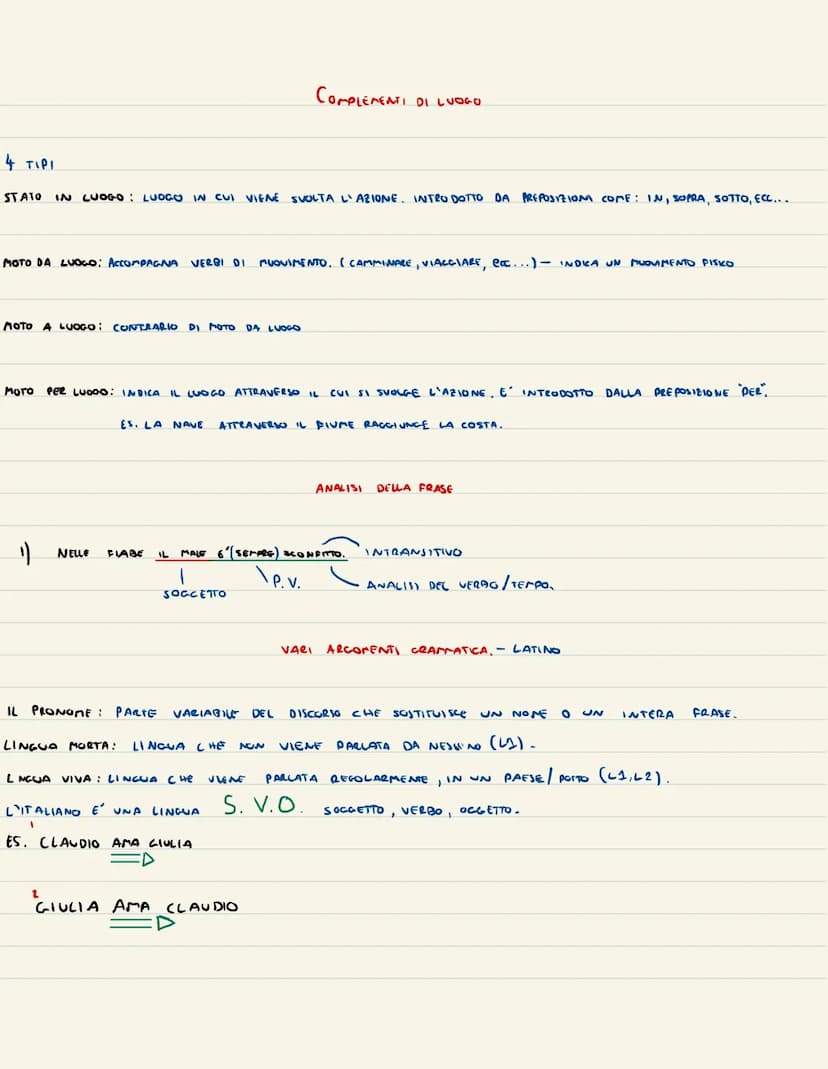 COMPLEMENTI DI LUOGO
4 TIPI
STATO IN LUOGO: LUOGO IN CUI VIENE SVOLTA L'AZIONE. INTRODOTTO DA PREPOSIZIONI COME: IN, SOPRA, SOTTO, ECC...
MOTO DA LUOGO: ACCOMPAGNA VERBI DI MUOVIMENTO. (CAMMINARE, VIAGGIARE, ecc...) - INDICA UN MUOVIMENTO FISICO
MOTO A LUOGO: CONTRARIO DI MOTO DA LUOGO
MOTO PER LUOGO: INDICA IL LUOGO ATTRAVERSO IL CUI SI SVOLGE L'AZIONE. E' INTRODOTTO DALLA PREPOSIZIONE "PER".
ES. LA NAVE ATTRAVERSO IL FIUME RAGGIUNGE LA COSTA.
ANALISI DELLA FRASE
1) NELLE FIABE IL MALE E' (SEMPRE) SCONFITTO. INTRANSITIVO
SOGGETTO P.V. ANALISI DEL VERBO/TEMPO.
VARI ARGOMENTI GRAMMATICA. - LATINO
IL PRONOME: PARTE VARIABILE DEL DISCORSO CHE SOSTITUISCE UN NOME O UN INTERA FRASE.
LINGUA MORTA: LINGUA CHE NON VIENE PARLATA DA NESSUNO (L1).
LINGUA VIVA: LINGUA CHE VIENE PARLATA REGOLARMENTE, IN UN PAESE/ (L1, L2).
L'ITALIANO E' UNA LINGUA S.V.O. SOGGETTO, VERBO, OGGETTO.
1
ES. CLAUDIO AMA GIULIA
2
GIULIA AMA CLAUDIO